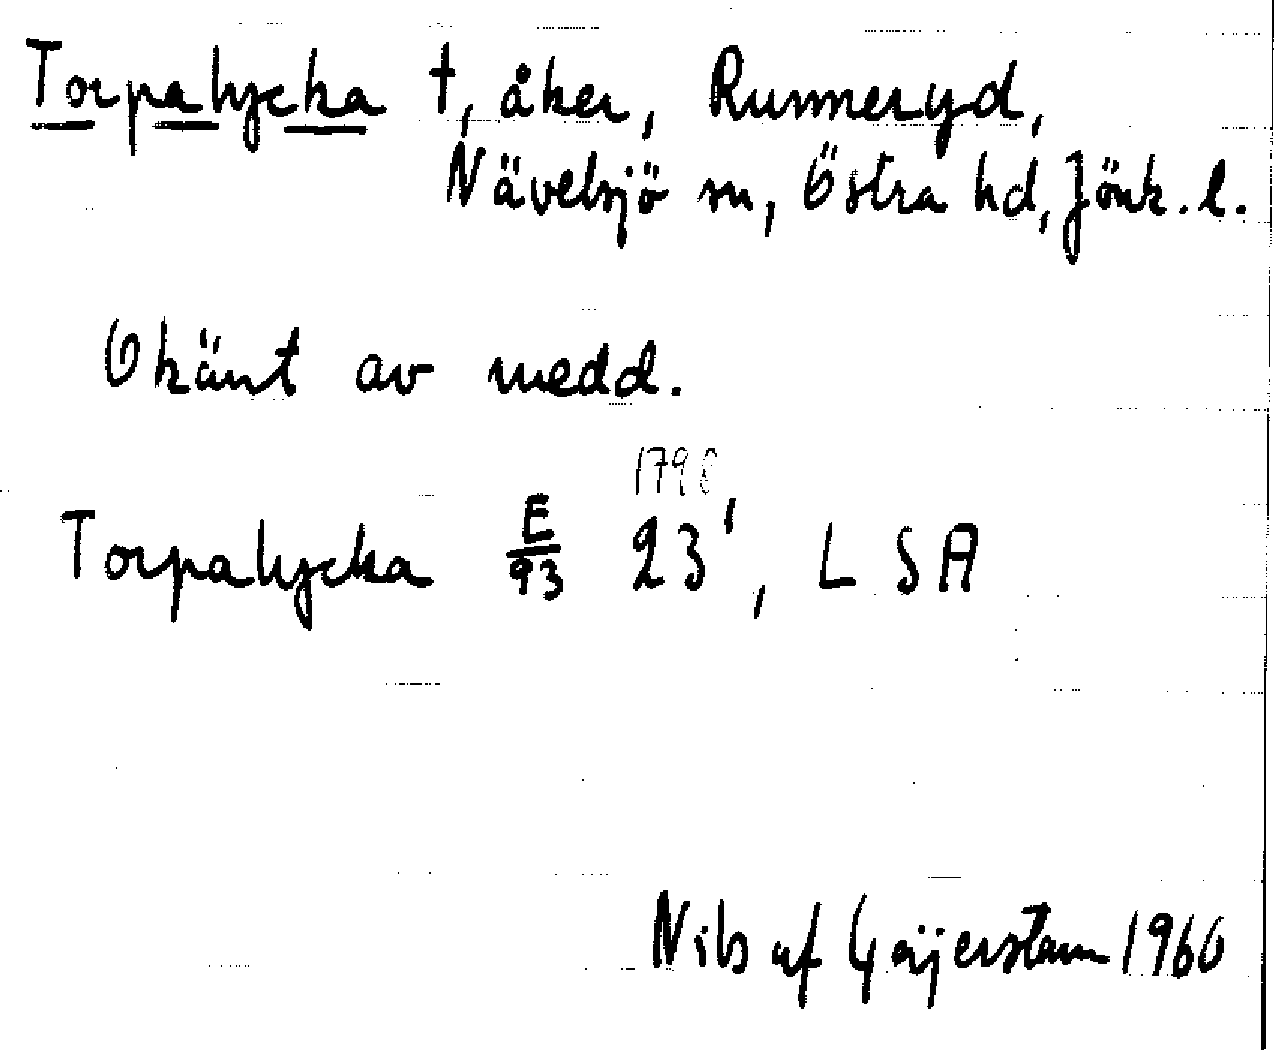 Torpalycka †, åker, Runneryd,
Nävelsjö sn, Östra hd, Jönk. l.
Okänt av medd.
1796
Torpalycka E/93 23', LSA
Nils af Geijerstam 1960